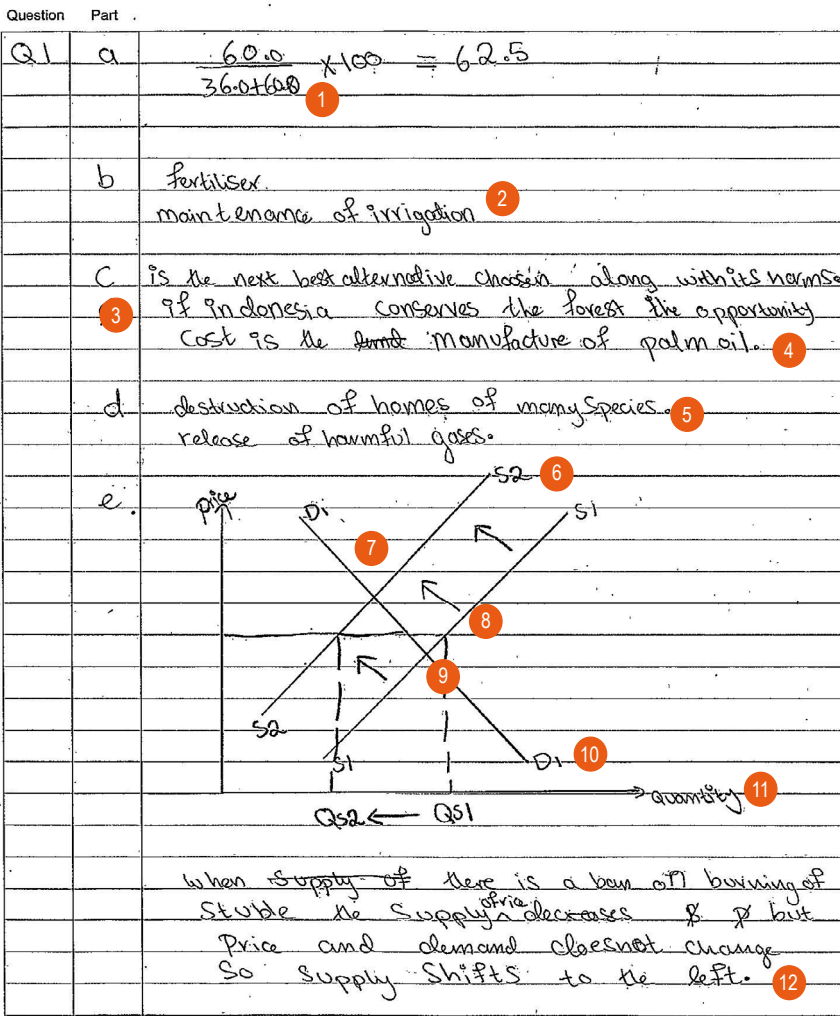 Question Part
Q1 a 60.0
36.0+60.0 ×100 = 62.5
1
b fertiliser.
maintenance of irrigation 2
C is the next best alternative choosen along with its
3 if indonesia conserves the forest the opportunity
cost is the manufacture of palm oil. 4
d destruction of homes of many species. 5
release of harmful gases.
e. Price D1 S2 6 S1
7
8
9
S2 S1 D1 10
Quantity 11
QS2 ← QS1
when supply of there is a ban on burning of
stuble the supply of rice decreases but
price and demand doesnot change
So supply shifts to the left. 12